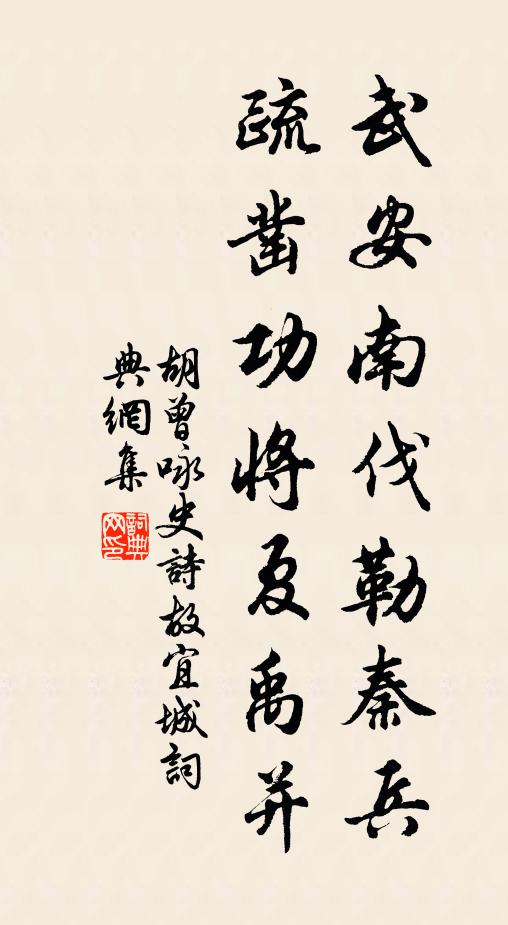 武安南伐勒秦兵
疏凿功將夏禹并
胡曾咏史詩故宜城詞
典網集
詞典
网印